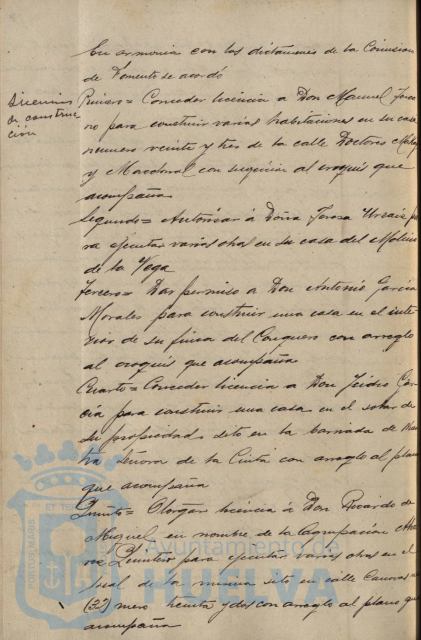 En armonia con los dictámenes de la Comision
de Fomento se acordó
Licencias
de construc
ción
Primero= Conceder licencia a Don Manuel
no para construir varias habitaciones en su casa
numero veinte y tres de la calle Doctores
y con sugeción al croquis que
acompaña
Segundo= Autorizar á Doña Teresa pa
ra ejecutar varias obras en su casa del Molino
de la Vega
Tercero= Dar permiso a Don Antonio Garcia
Morales para construir una casa en el inte
rior de su finca del Conquero con arreglo
al croquis que acompaña
Cuarto= Conceder licencia a Don Isidro Gar
cía para construir una casa en el solar de
su propiedad sito en la barriada de Nues
tra Señora de la Cinta con arreglo al plano
que acompaña
Quinto= Otorgar licencia á Don Ricardo de
Miguel en nombre de la Compañia
para ejecutar varias obras en el
de la misma sito en calle Canovas
(32) mero treinta y dos con arreglo al plano que
acompaña
Ayuntamiento de
HUELVA